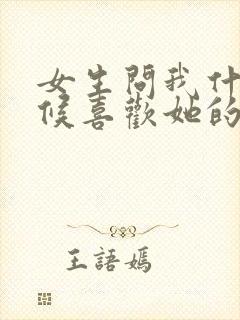 女生問我什
候喜歡她的
王語嫣